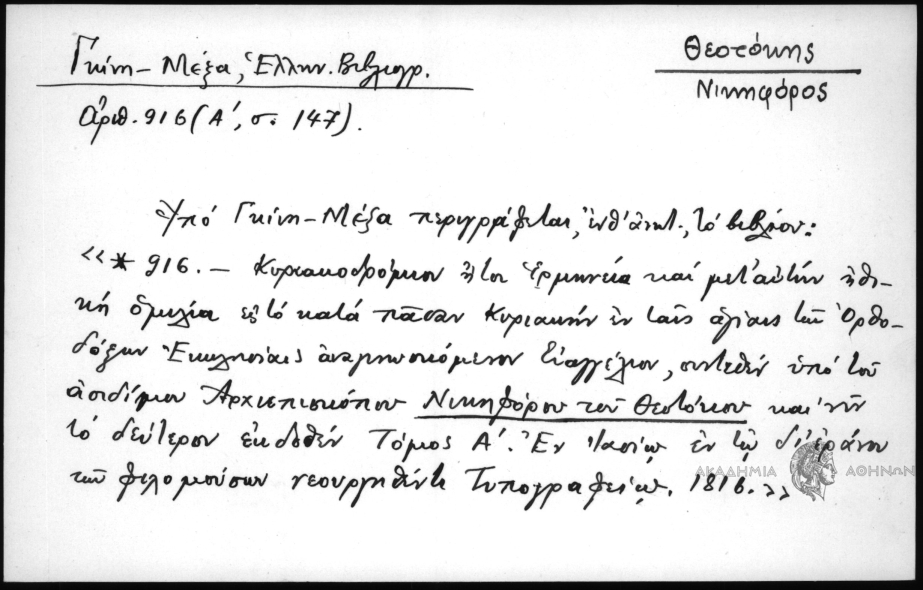 Γκίνη–Μέξα, Ἑλλην. Βιβλιογρ.
Θεοτόκης
Νικηφόρος
ἀριθ. 916 (Α΄, σ. 147).
Ὑπό Γκίνη–Μέξα περιγράφεται, ἐνθ' ἀνωτ., τό βιβλίον:
«* 916. – Κυριακοδρόμιον ἤτοι Ἑρμηνεία καί μετ' αὐτήν ἠθι-
κή ὁμιλία εἰς τό κατά πᾶσαν Κυριακήν ἐν ταῖς ἁγίαις τῶν Ὀρθο-
δόξων Ἐκκλησίαις ἀναγινωσκόμενον Εὐαγγέλιον, συντεθέν ὑπό τοῦ
ἀοιδίμου Ἀρχιεπισκόπου Νικηφόρου τοῦ Θεοτόκου καί νῦν
τό δεύτερον ἐκδοθέν Τόμος Α΄. Ἐν Ἰασίῳ ἐν τῷ δι' ἐράνου
τῶν φιλομούσων νεουργηθέντι Τυπογραφείῳ. 1816.»
ΑΚΑΔΗΜΙΑ ΑΘΗΝΩΝ